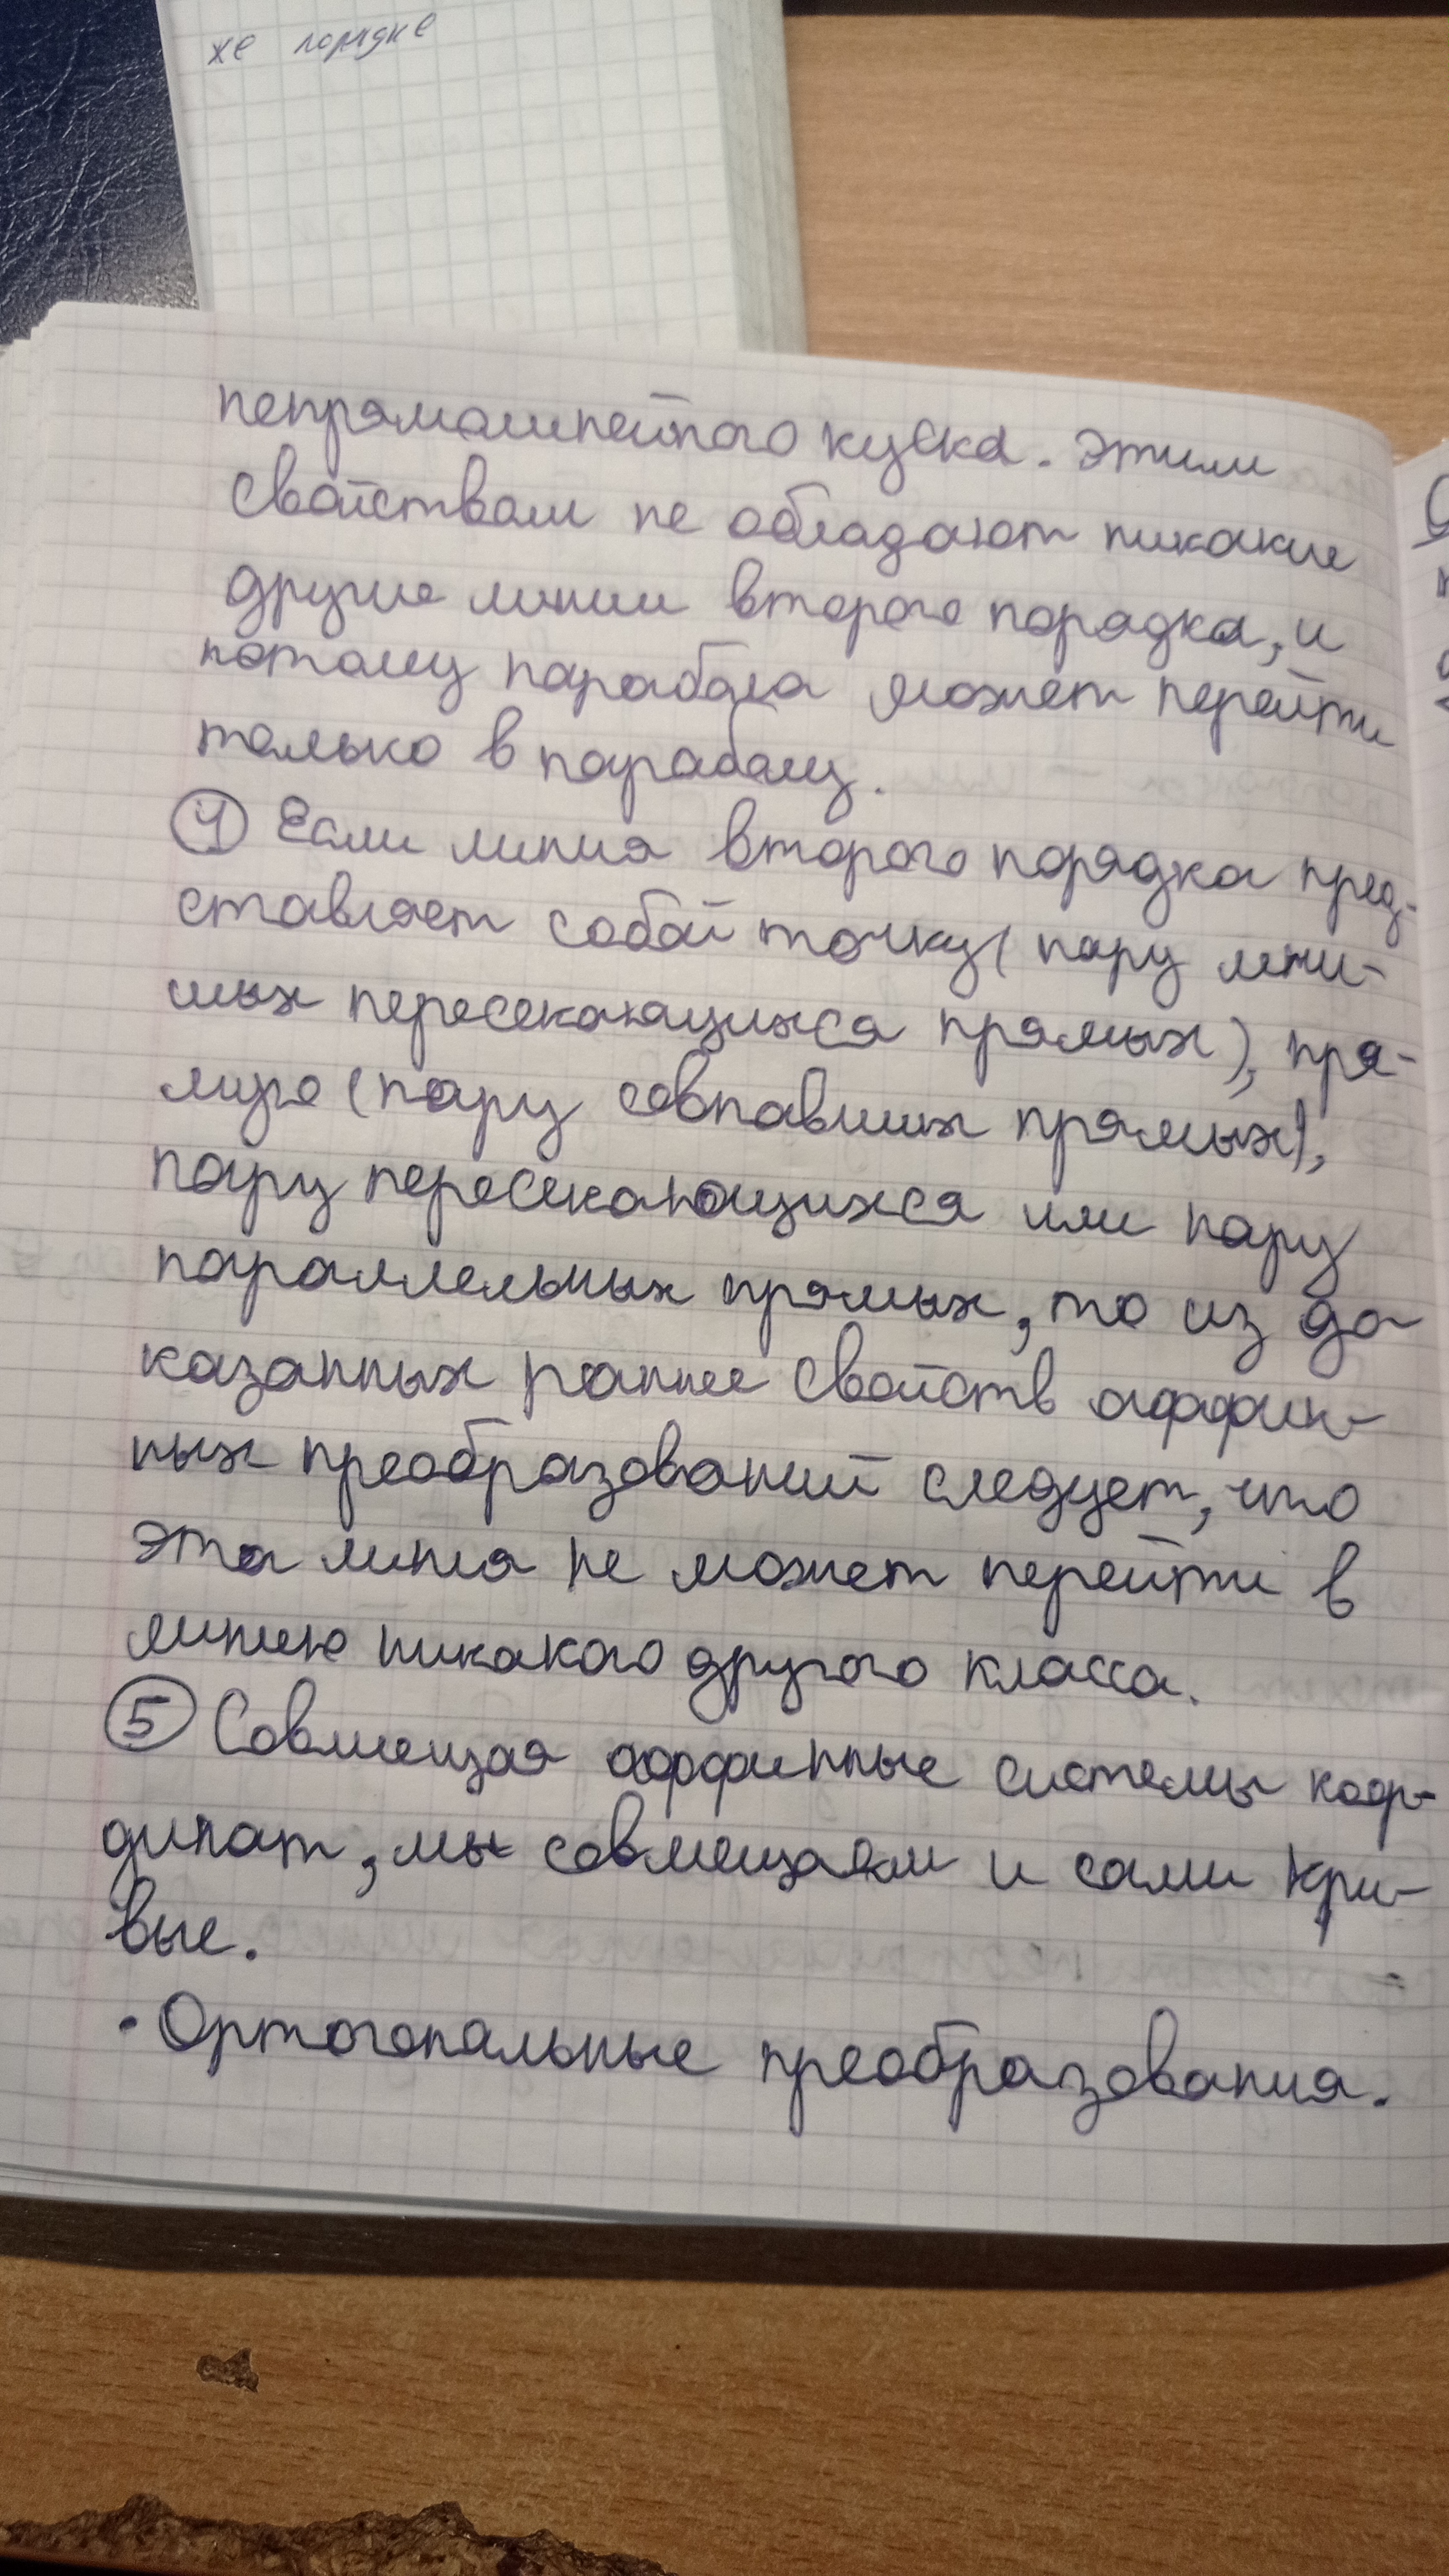 же порядке
непрямолинейного куска. Этими
свойствами не обладают никакие
другие линии второго порядка, и
потому парабола может перейти
только в параболу.
④ Если линия второго порядка пред-
ставляет собой точку (пару мни-
мых пересекающихся прямых), пря-
мую (пару совпавших прямых),
пару пересекающихся или пару
параллельных прямых, то из до
казанных ранее свойств аффин-
ных преобразований следует, что
эта линия не может перейти в
линию никакого другого класса.
⑤ Совмещая аффинные системы коор-
динат, мы совмещаем и сами кри-
вые.
• Ортогональные преобразования.